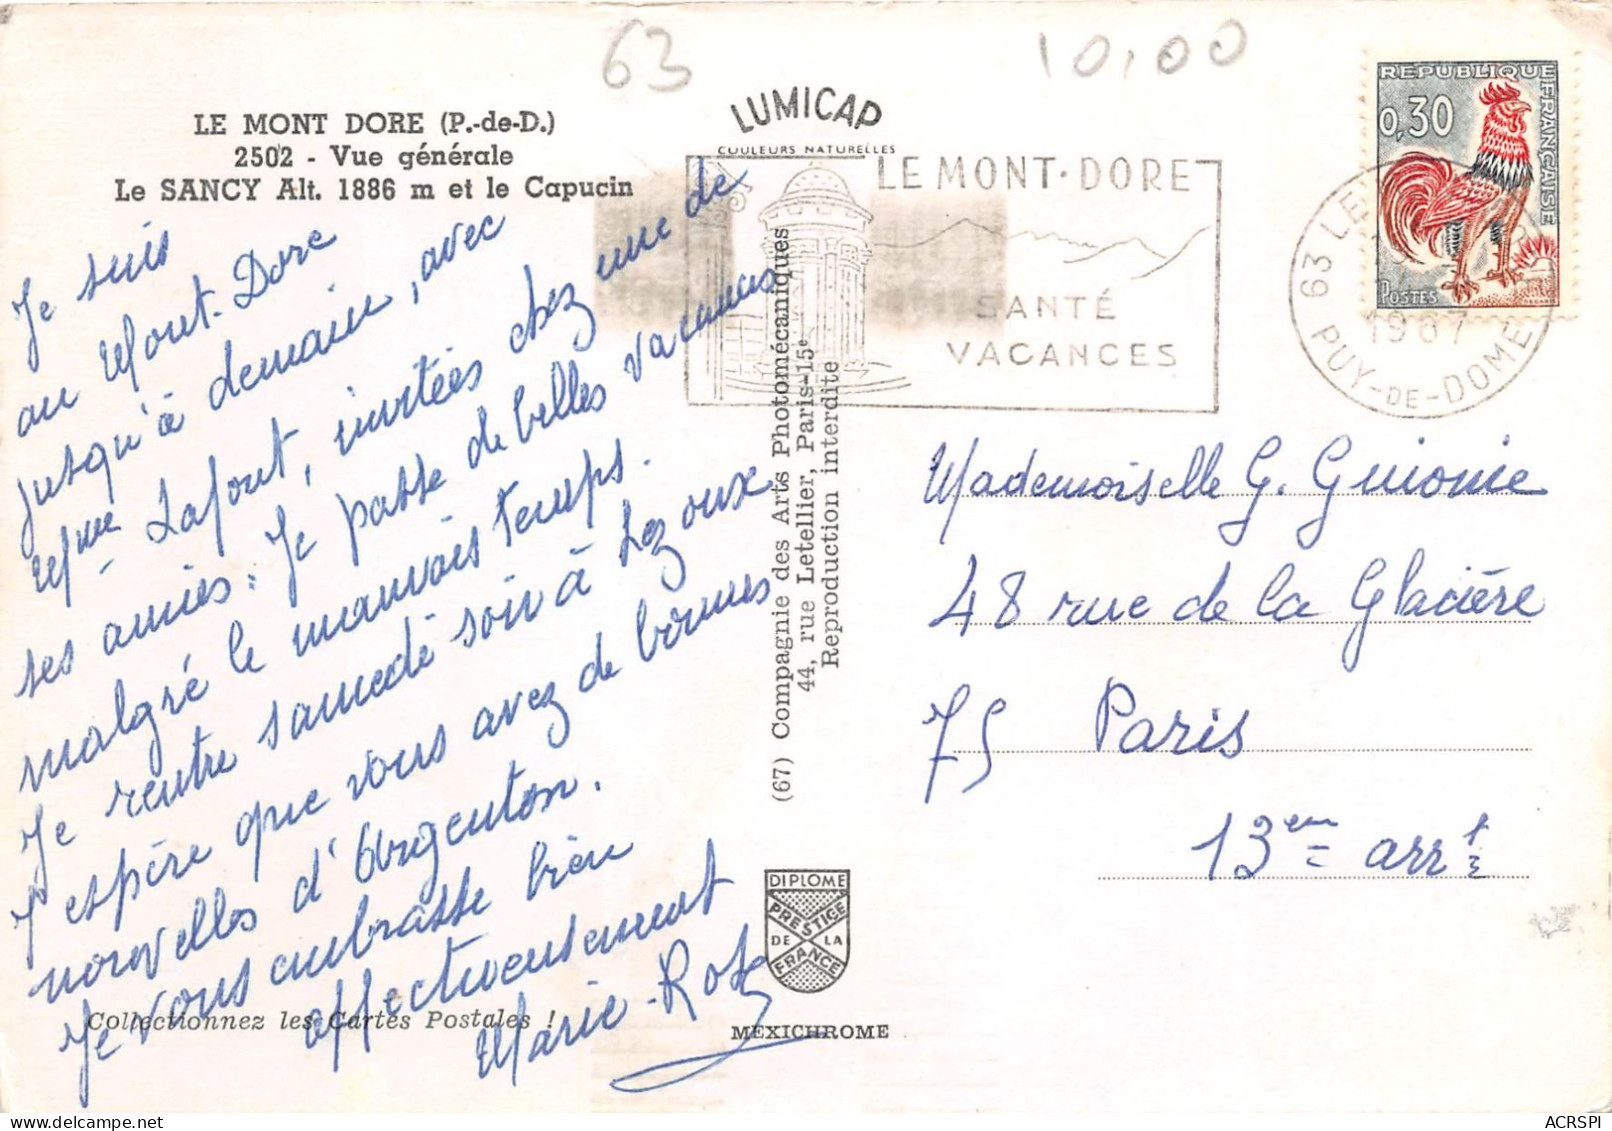 63
10,00
LE MONT DORE (P.-de-D.)
2502 - Vue générale
Le SANCY Alt. 1886 m et le Capucin
LUMICAP
COULEURS NATURELLES
LE MONT-DORE
SANTÉ
VACANCES
REPUBLIQUE FRANÇAISE
0,30
POSTES
63 LE
1967
PUY-DE-DOME
Je suis
au Mont-Dore
jusqu'à demain, avec
Mme Lafont, invitées chez une de
ses amies. Je passe de belles vacances
malgré le mauvais temps.
Je rentre samedi soir à Lezoux.
J'espère que vous avez de bonnes
nouvelles d'Argenton.
Je vous embrasse bien
affectueusement
Marie-Rose
Mademoiselle G. Guionie
48 rue de la Glacière
75 Paris
13em arrt
(67) Compagnie des Arts Photomécaniques
44, rue Letellier, Paris-15e
Reproduction interdite
DIPLOME
PRESTIGE
DE LA
FRANCE
Collectionnez les Cartes Postales !
MEXICHROME
ACRSPI